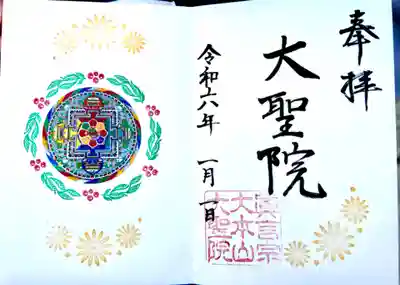 奉拝
大聖院
令和六年 一月一日
真言宗
大本山
大聖院